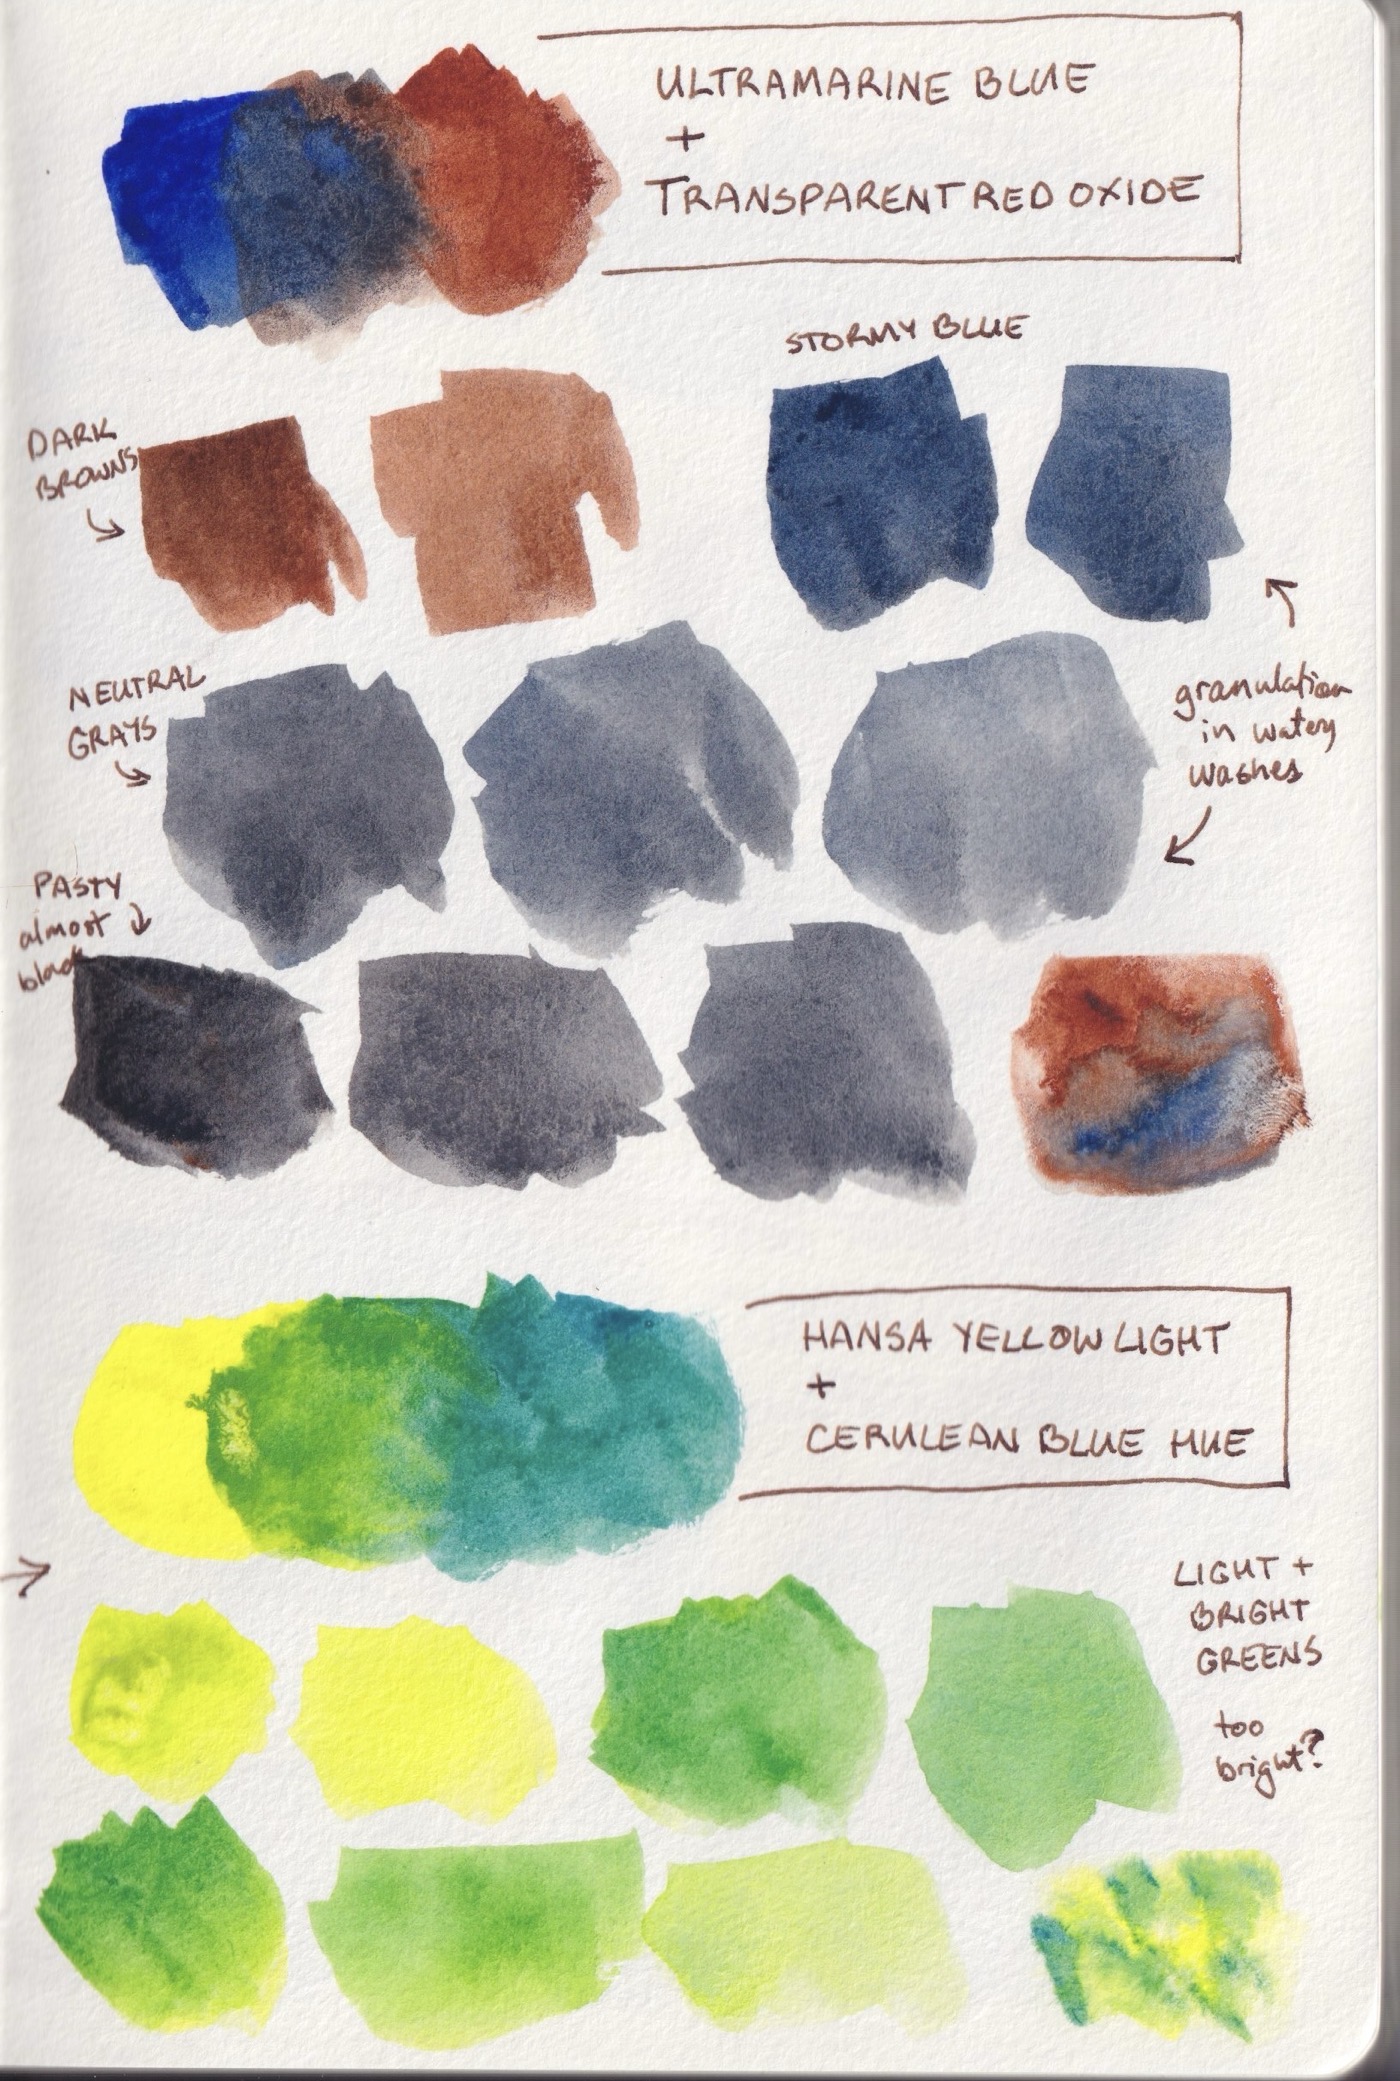 ULTRAMARINE BLUE
+
TRANSPARENT RED OXIDE
STORMY BLUE
DARK
BROWNS
NEUTRAL
GRAYS
granulation
in watery
washes
PASTY
almost
black
HANSA YELLOW LIGHT
+
CERULEAN BLUE HUE
LIGHT +
BRIGHT
GREENS
too
bright?